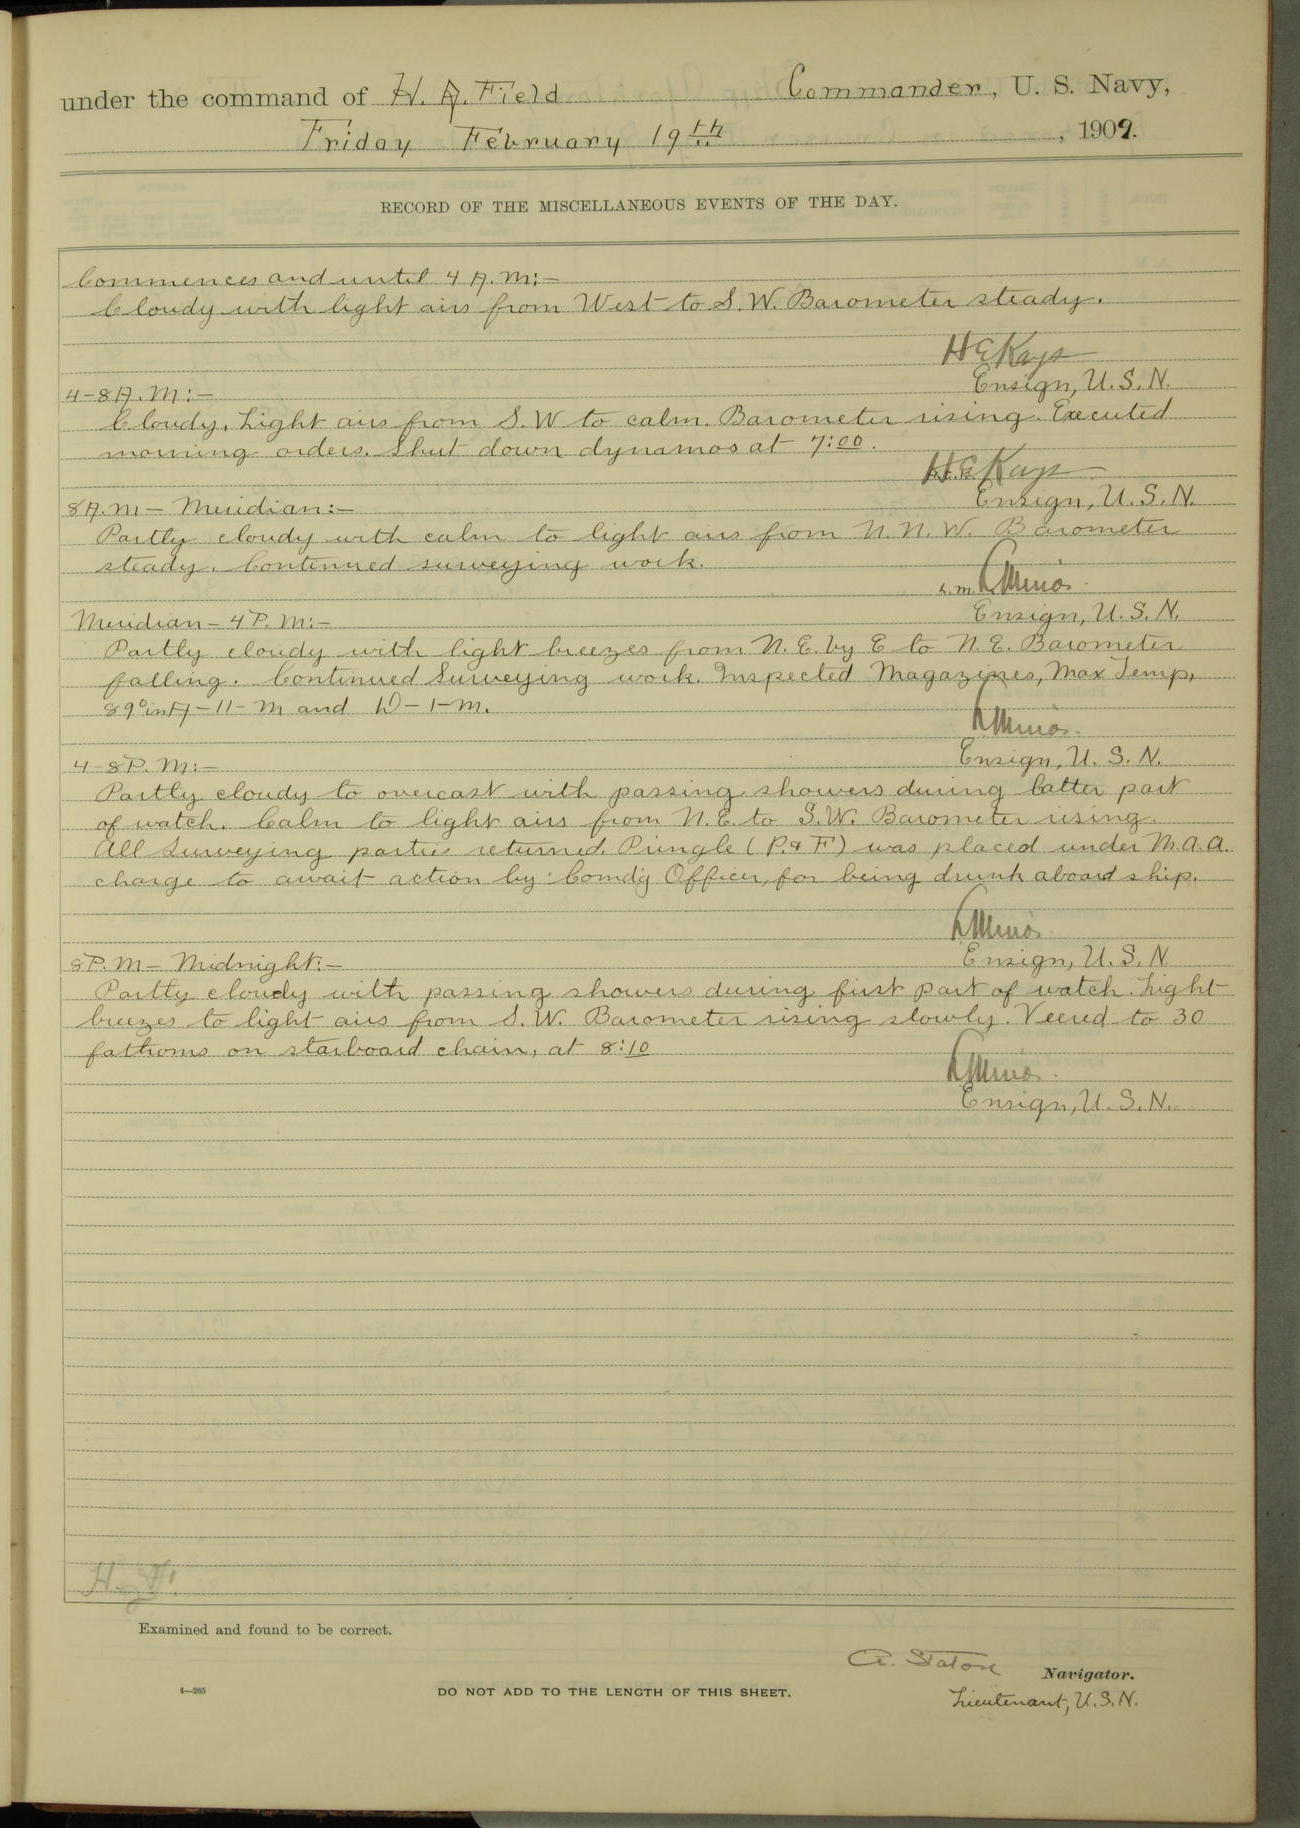 under the command of H. A. Field Commander, U. S. Navy,
Friday February 19th, 1909.
RECORD OF THE MISCELLANEOUS EVENTS OF THE DAY.
Commences and until 4 A.M:-
Cloudy with light airs from West to S.W. Barometer steady.
H E Kays
Ensign, U.S.N.
4-8 A.M:-
Cloudy. Light airs from S.W to calm. Barometer rising. Executed
morning orders. Shut down dynamos at 7:00.
H E Kays
Ensign, U.S.N.
8 A.M- Meridian:-
Partly cloudy with calm to light airs from N.N.W. Barometer
steady. Continued surveying work.
Ensign, U.S.N.
Meridian-4 P.M:-
Partly cloudy with light breezes from N.E. by E to N.E. Barometer
falling. Continued Surveying work. Inspected Magazines, Max Temp,
89° in A-11-M and D-1-M.
Ensign, U.S.N.
4-8 P.M:-
Partly cloudy to overcast with passing showers during latter part
of watch. Calm to light airs from N.E. to S.W. Barometer rising.
All Surveying parties returned. Pringle (P.& F) was placed under M.A.A.
charge to await action by Comd'g Officer, for being drunk aboard ship.
Ensign, U.S.N
8 P.M- Midnight:-
Partly cloudy with passing showers during first part of watch. Light
breezes to light airs from S.W. Barometer rising slowly. Veered to 30
fathoms on starboard chain, at 8:10
Ensign, U.S.N.
H. F.
Examined and found to be correct.
A. Staton Navigator.
Lieutenant, U.S.N.
4—265
DO NOT ADD TO THE LENGTH OF THIS SHEET.